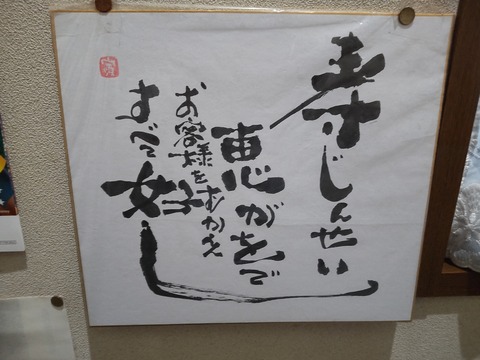 寿じんせい
恵がおで
お客様をむかえ
すべて好し